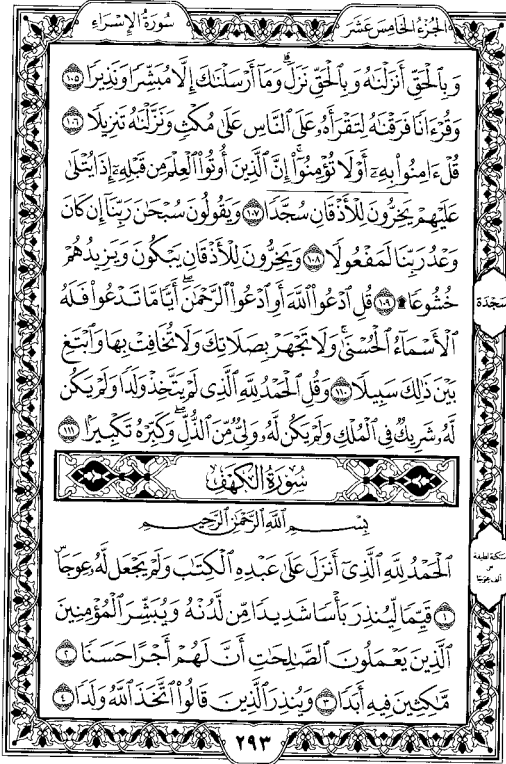 سُورَةُ الإِسْرَاءِ
الجُزْءُ الخَامِسَ عَشَرَ
وَبِٱلْحَقِّ أَنزَلْنَٰهُ وَبِٱلْحَقِّ نَزَلَۗ وَمَآ أَرْسَلْنَٰكَ إِلَّا مُبَشِّرًا وَنَذِيرًا ١٠٥
وَقُرْءَانًا فَرَقْنَٰهُ لِتَقْرَأَهُۥ عَلَى ٱلنَّاسِ عَلَىٰ مُكْثٍ وَنَزَّلْنَٰهُ تَنزِيلًا ١٠٦
قُلْ ءَامِنُوا۟ بِهِۦٓ أَوْ لَا تُؤْمِنُوٓا۟ۚ إِنَّ ٱلَّذِينَ أُوتُوا۟ ٱلْعِلْمَ مِن قَبْلِهِۦٓ إِذَا يُتْلَىٰ
عَلَيْهِمْ يَخِرُّونَ لِلْأَذْقَانِ سُجَّدًا ١٠٧ وَيَقُولُونَ سُبْحَٰنَ رَبِّنَآ إِن كَانَ
وَعْدُ رَبِّنَا لَمَفْعُولًا ١٠٨ وَيَخِرُّونَ لِلْأَذْقَانِ يَبْكُونَ وَيَزِيدُهُمْ
خُشُوعًا ۩ ١٠٩ قُلِ ٱدْعُوا۟ ٱللَّهَ أَوِ ٱدْعُوا۟ ٱلرَّحْمَٰنَۖ أَيًّا مَّا تَدْعُوا۟ فَلَهُ
سَجْدَة
ٱلْأَسْمَآءُ ٱلْحُسْنَىٰۚ وَلَا تَجْهَرْ بِصَلَاتِكَ وَلَا تُخَافِتْ بِهَا وَٱبْتَغِ
بَيْنَ ذَٰلِكَ سَبِيلًا ١١٠ وَقُلِ ٱلْحَمْدُ لِلَّهِ ٱلَّذِى لَمْ يَتَّخِذْ وَلَدًا وَلَمْ يَكُن
لَّهُۥ شَرِيكٌ فِى ٱلْمُلْكِ وَلَمْ يَكُن لَّهُۥ وَلِىٌّ مِّنَ ٱلذُّلِّۖ وَكَبِّرْهُ تَكْبِيرًۢا ١١١
سُورَةُ الكَهْفِ
بِسْمِ ٱللَّهِ ٱلرَّحْمَٰنِ ٱلرَّحِيمِ
ٱلْحَمْدُ لِلَّهِ ٱلَّذِىٓ أَنزَلَ عَلَىٰ عَبْدِهِ ٱلْكِتَٰبَ وَلَمْ يَجْعَل لَّهُۥ عِوَجَاۜ
سكتة لطيفة
على
ألف عِوَجَا
١ قَيِّمًا لِّيُنذِرَ بَأْسًا شَدِيدًا مِّن لَّدُنْهُ وَيُبَشِّرَ ٱلْمُؤْمِنِينَ
ٱلَّذِينَ يَعْمَلُونَ ٱلصَّٰلِحَٰتِ أَنَّ لَهُمْ أَجْرًا حَسَنًا ٢
مَّٰكِثِينَ فِيهِ أَبَدًا ٣ وَيُنذِرَ ٱلَّذِينَ قَالُوا۟ ٱتَّخَذَ ٱللَّهُ وَلَدًا ٤
٢٩٣